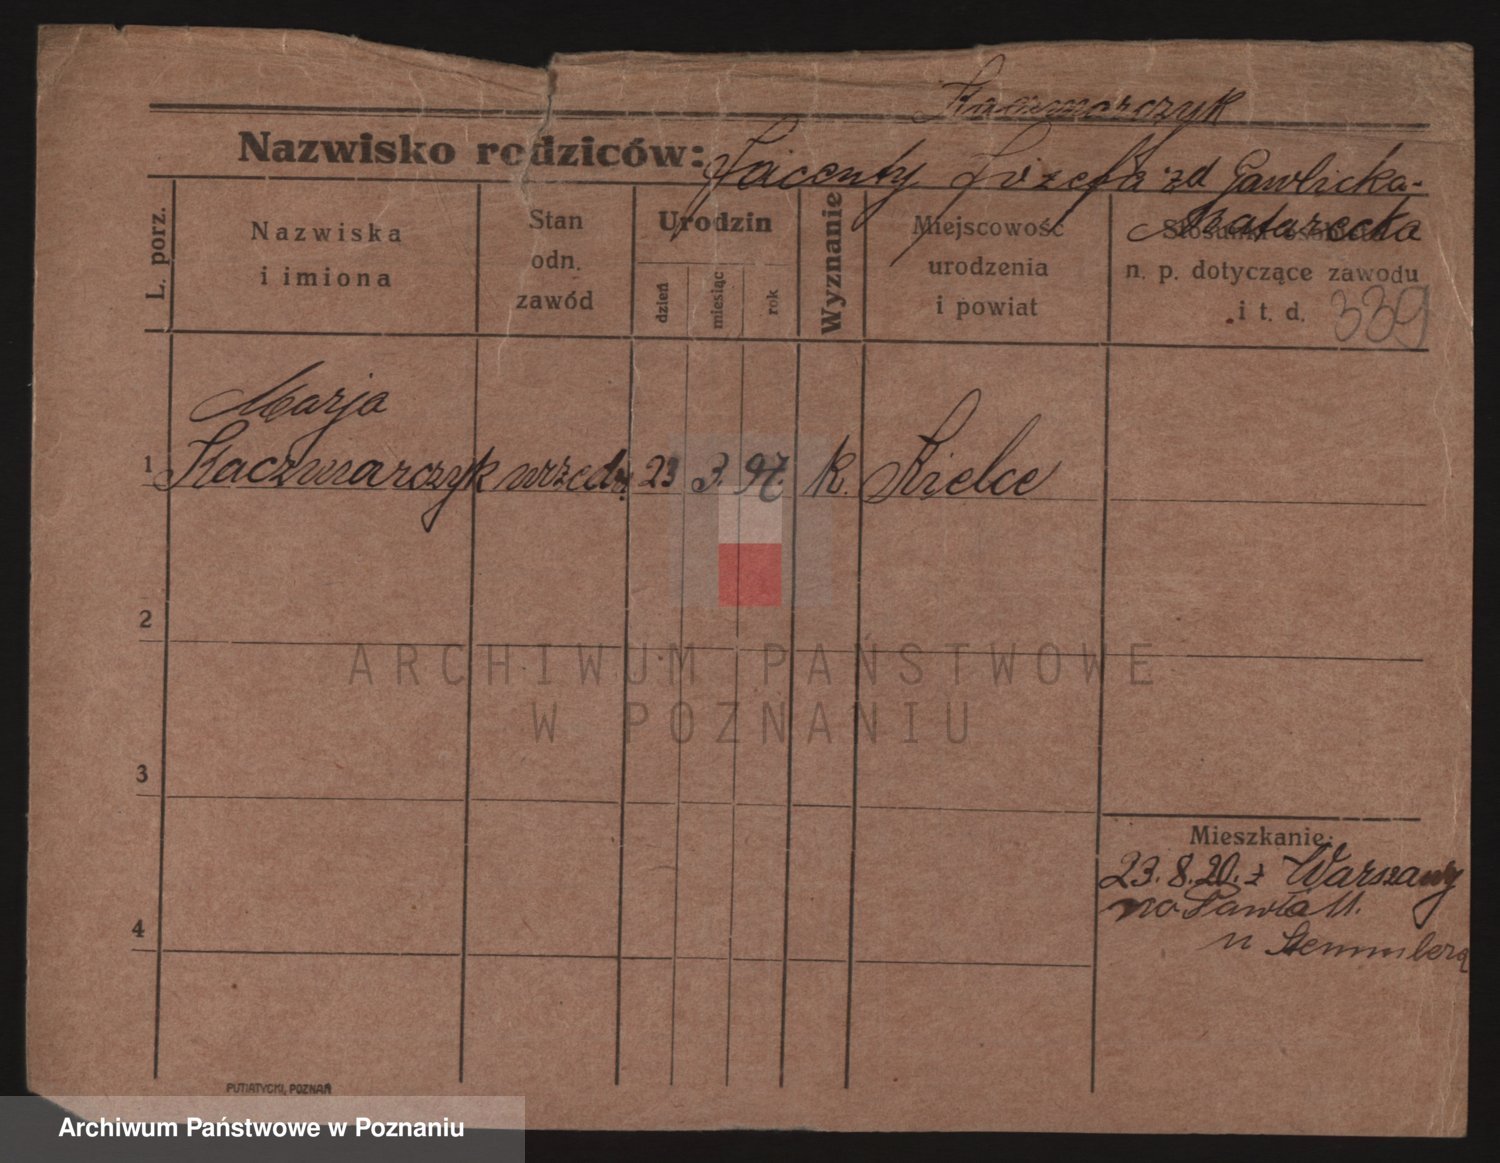 Kaczmarczyk
Nazwisko rodziców: Józefa zd Gawlicka-
L. porz.
Nazwiska
i imiona
Stan
odn.
zawód
Urodzin
dzień
miesiąc
rok
Wyznanie
Miejscowość
urodzenia
i powiat
Stosunki
n. p. dotyczące zawodu
i t. d.
339
Marja
1 Kaczmarczyk urzędn 23 3. 97. k. Kielce
2
3
4
Mieszkanie:
23. 8. 20. z Warszawy
na Pawła 11.
u
PUTIATYCKI, POZNAŃ
ARCHIWUM PAŃSTWOWE
W POZNANIU
Archiwum Państwowe w Poznaniu